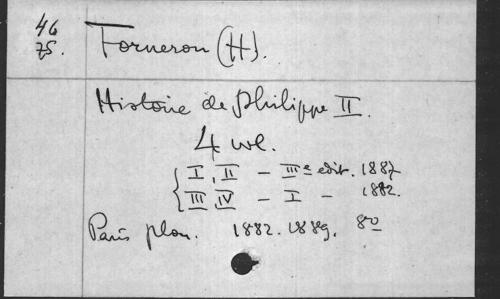 46
75.
Forneron (H).
Histoire de Philippe II.
4 vol.
I, II – IIIe edit. 1887
III, IV – I – 1882.
Paris Plon. 1882. 1889. 8o